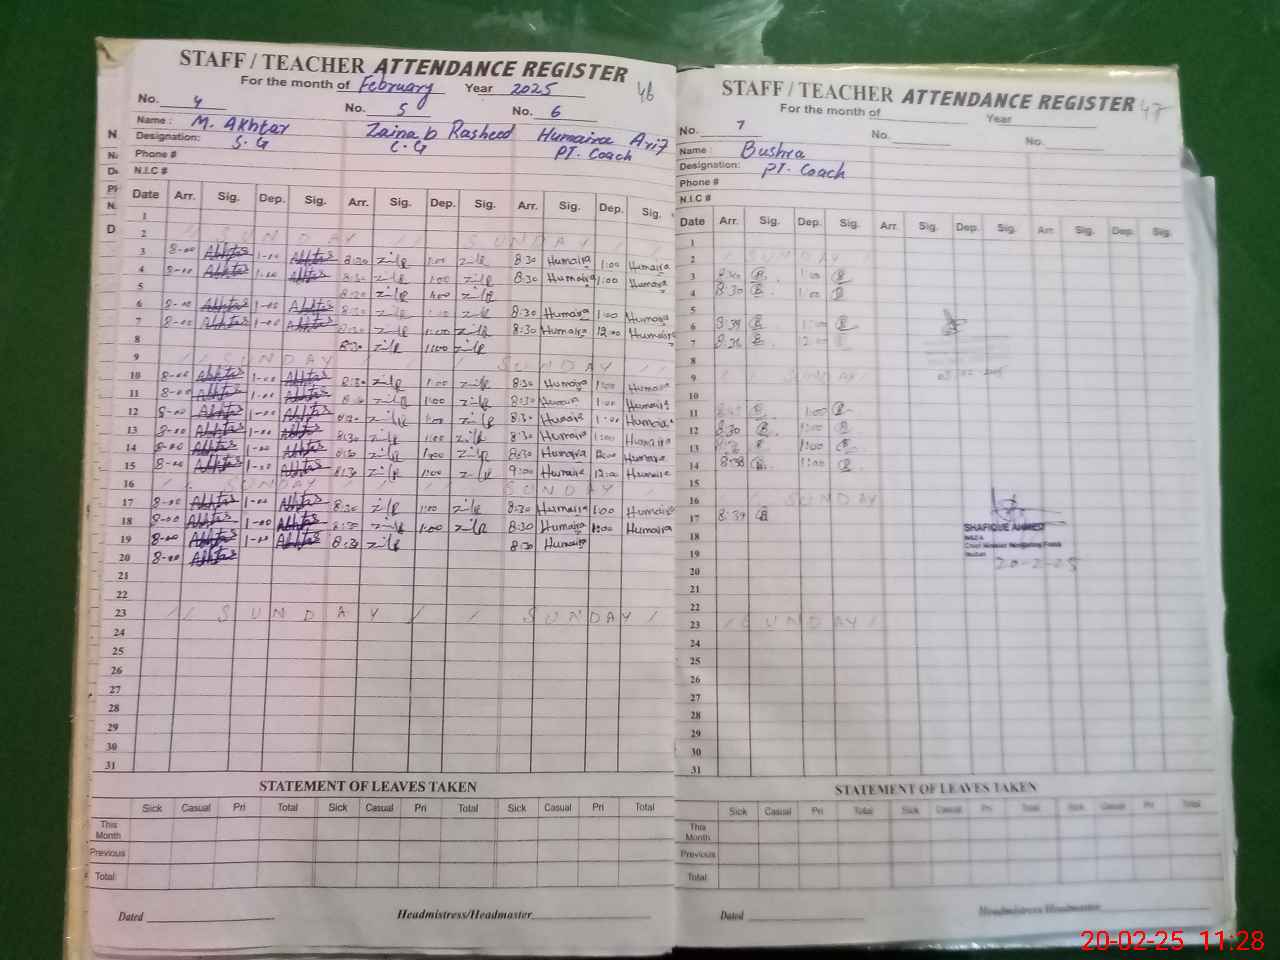 STAFF / TEACHER ATTENDANCE REGISTER
For the month of February Year 2025 46
No. 4 No. 5 No. 6
Name : M. Akhtar Zainab Rasheed Humaira Arif
Designation: S.G C.G PT. Coach
Phone #
N.I.C #
Date Arr. Sig. Dep. Sig. Arr. Sig. Dep. Sig. Arr. Sig. Dep. Sig.
1
2 SUNDAY SUNDAY
3 8-00 Akhtar 1-00 Akhtar 8:30 1:00 8:30 Humaira 1:00 Humaira
4 8-00 Akhtar 1-00 Akhtar 8:30 1:00 8:30 Humaira 1:00 Humaira
5 8:30 1:00
6 8-00 Akhtar 1-00 Akhtar 8:30 1:00 8:30 Humaira 1:00 Humaira
7 8-00 Akhtar 1-00 Akhtar 8:30 1:00 8:30 Humaira 12:00 Humaira
8 8:30 1:00
9 SUNDAY SUNDAY
10 8-00 Akhtar 1-00 Akhtar 8:30 1:00 8:30 Humaira 1:00 Humaira
11 8-00 Akhtar 1-00 Akhtar 8:30 1:00 8:30 Humaira 1:00 Humaira
12 8-00 Akhtar 1-00 Akhtar 8:30 1:00 8:30 Humaira 1:00 Humaira
13 8-00 Akhtar 1-00 Akhtar 8:30 1:00 8:30 Humaira 1:00 Humaira
14 8-00 Akhtar 1-00 Akhtar 8:30 1:00 8:30 Humaira Humaira
15 8-00 Akhtar 1-00 Akhtar 8:30 1:00 9:00 Humaira 12:00 Humaira
16 SUNDAY SUNDAY
17 8-00 Akhtar 1-00 Akhtar 8:30 1:00 8:30 Humaira 1:00 Humaira
18 8-00 Akhtar 1-00 Akhtar 8:30 1:00 8:30 Humaira 1:00 Humaira
19 8-00 Akhtar 1-00 Akhtar 8:30 8:30 Humaira
20 8-00 Akhtar
21
22
23 SUNDAY SUNDAY
24
25
26
27
28
29
30
31
STATEMENT OF LEAVES TAKEN
Sick Casual Pri Total Sick Casual Pri Total Sick Casual Pri Total
This Month
Previous
Total
Dated Headmistress/Headmaster
STAFF / TEACHER ATTENDANCE REGISTER 47
For the month of Year
No. 7 No. No.
Name : Bushra
Designation: PT. Coach
Phone #
N.I.C #
Date Arr. Sig. Dep. Sig. Arr. Sig. Dep. Sig. Arr. Sig. Dep. Sig.
1
2 SUNDAY
3 8:30 B 1:00 B
4 8:30 B 1:00 B
5
6 8:39 B 1:00 B
7 B
8
9 SUNDAY
10
11 B 1:00 B
12 8:30 B 1:00 B
13 B 1:00 B
14 8:38 B 1:00 B
15
16 SUNDAY
17 8:39 B
18
SHAFIQUE AHMED
19
20
20-2-25
21
22
23 SUNDAY
24
25
26
27
28
29
30
31
STATEMENT OF LEAVES TAKEN
Sick Casual Pri Total Sick Casual Pri Total Sick Casual Pri Total
This Month
Previous
Total
Dated Headmistress/Headmaster
20-02-25 11:28